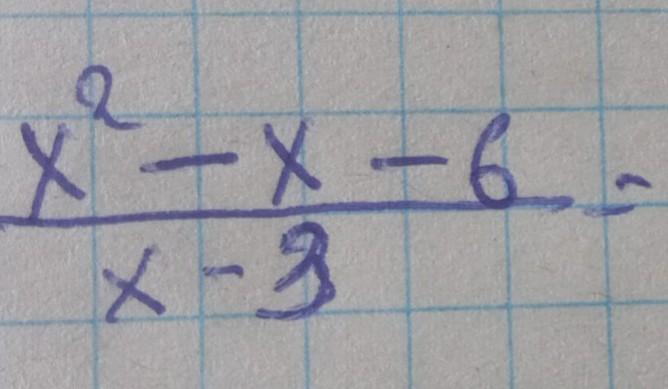 x² - x - 6 =
x - 3